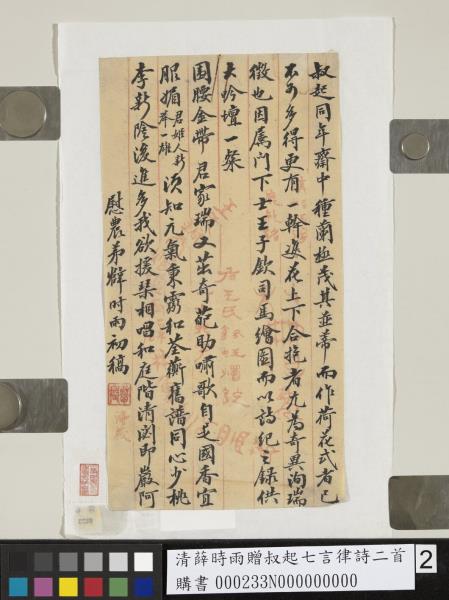 叔起同年齋中種蘭極茂其並蒂而作荷花式者已
不可多得更有一幹並花上下合抱者尤為奇異洵瑞
徵也因屬門下士王子欽司馬繪圖而以詩紀之錄供
大吟壇一粲
圍腰金帶君家瑞又茁奇葩助嘯歌自是國香宜
服媚君姬人新舉一雄須知元氣秉靈和荃蘅舊譜同心少桃
李新陰後進多我欲援琴相唱和庭階清閟即巖阿
慰農弟薛時雨初稿
清薛時雨贈叔起七言律詩二首
購書 000233N000000000
2